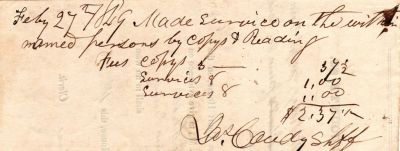 Feby 27th 1829 Made Survice on the within
named persons by copys & Reading
Fees copys 3 — 37½
Survices 8 1,00
Survices 8 1,00
$2.37½
Jas. Candy Shff